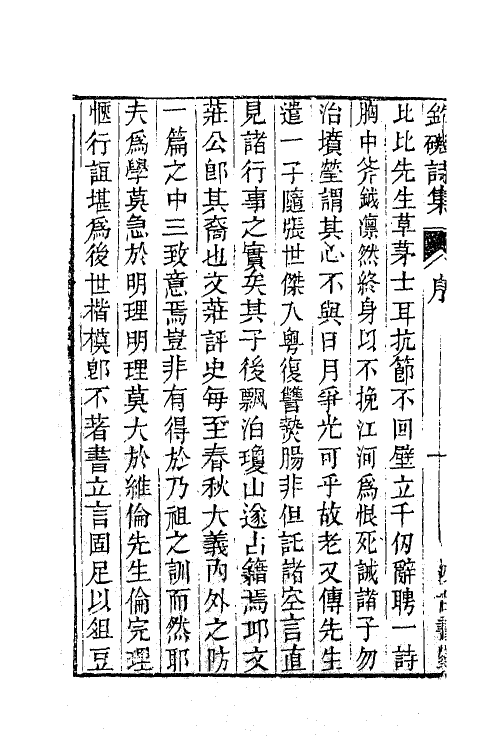 釣磯詩集 序 一
比比先生草茅士耳抗節不回壁立千仞辭聘一詩
胸中斧鉞凛然終身以不挽江河爲恨死誡諸子勿
治墳塋謂其心不與日月爭光可乎故老又傳先生
遣一子隨張世傑入粵復讐熱腸非但託諸空言直
見諸行事之實矣其子後飄泊瓊山遂占籍焉邱文
莊公卽其裔也文莊評史每至春秋大義內外之防
一篇之中三致意焉豈非有得於乃祖之訓而然耶
夫爲學莫急於明理明理莫大於維倫先生倫完理
愜行誼堪爲後世楷模卽不著書立言固足以俎豆